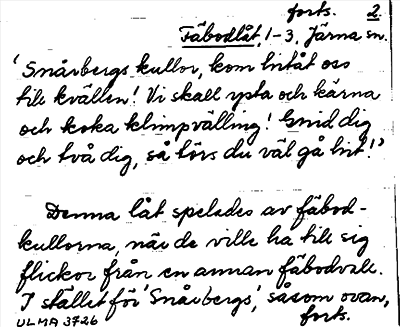 forts. 2.
Fäbodlåt, 1-3, Järna sn.
'Snårbergs kullor, kom hitåt oss
till kvällen! Vi skall ysta och kärna
och koka klimpvälling! Gnid dig
och två dig, så törs du väl gå hit!'
Denna låt spelades av fäbod-
kullorna, när de ville ha till sig
flickor från en annan fäbodvall.
I stället för 'Snårbergs', såsom ovan,
ULMA 3726 forts.